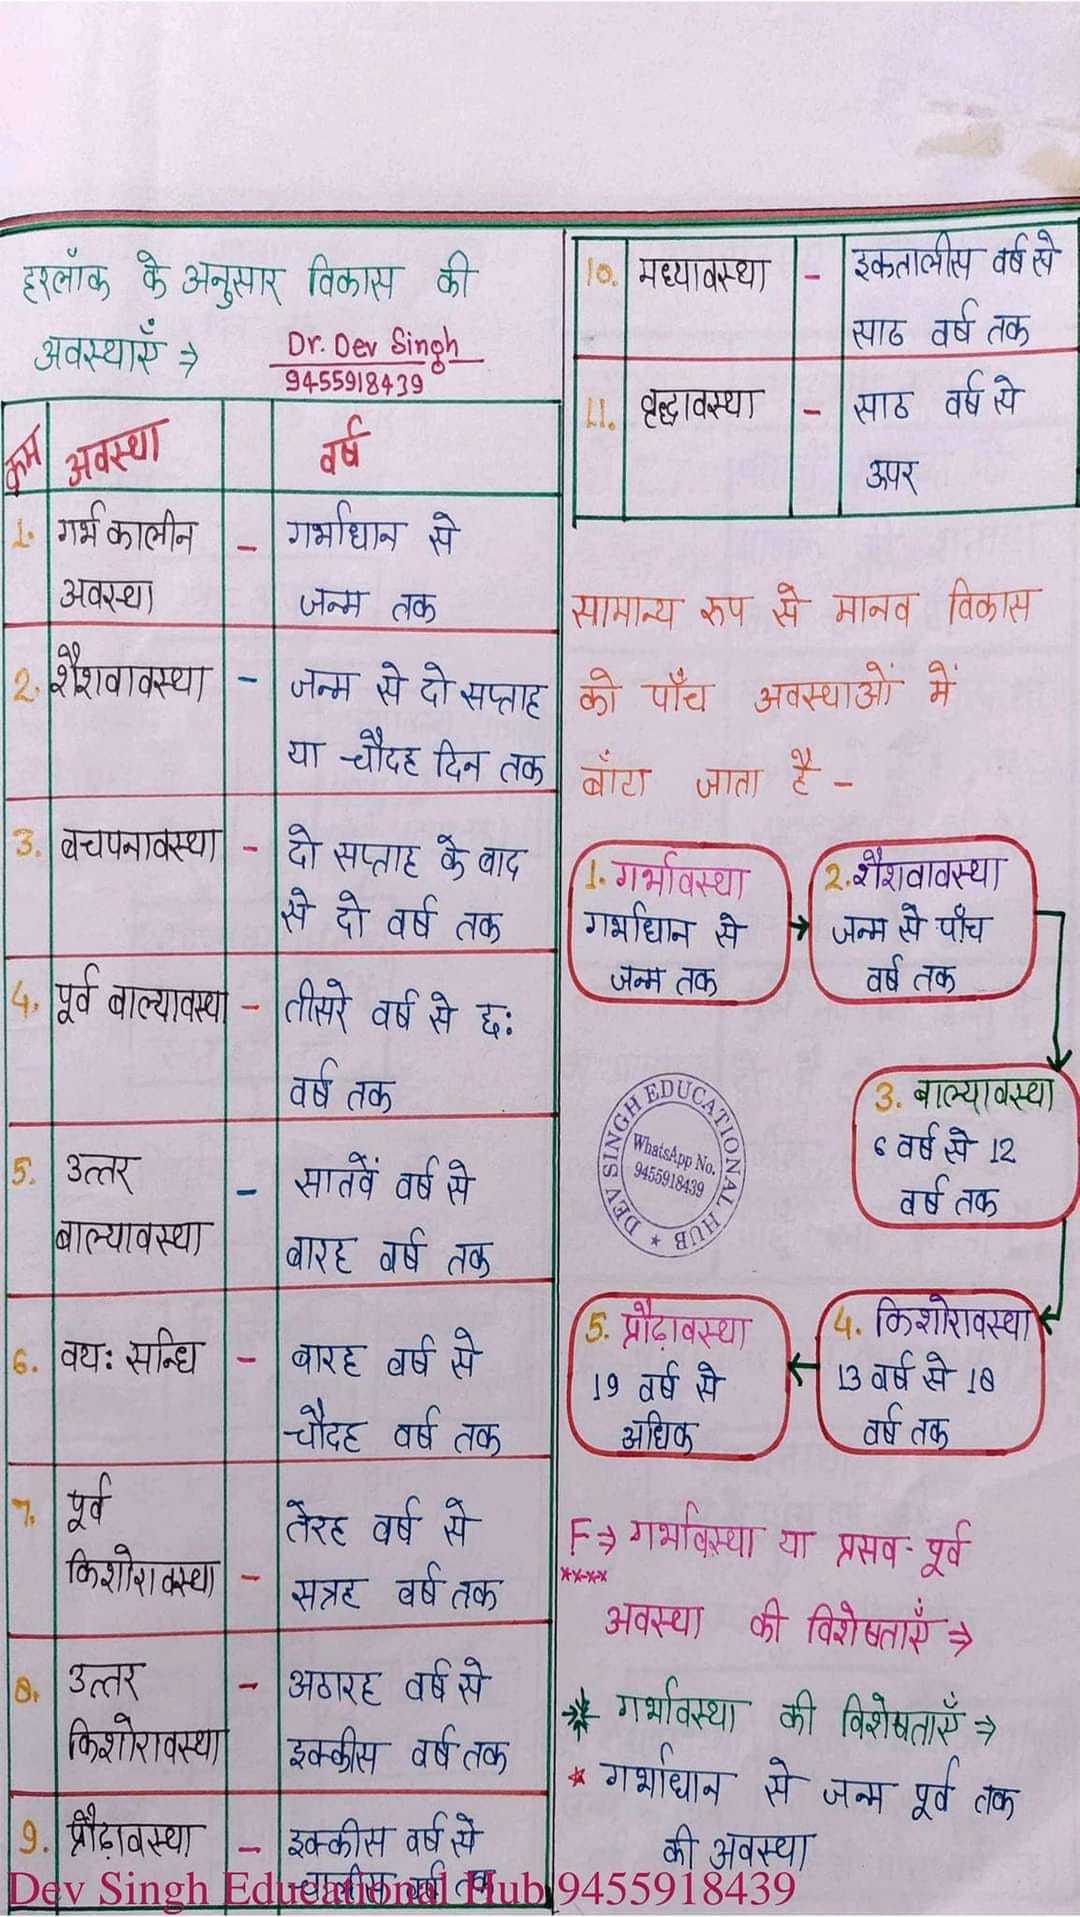 हरलॉक के अनुसार विकास की
अवस्थाएँ ⇒
Dr. Dev Singh
9455918439
क्रम अवस्था वर्ष
1. गर्भ कालीन - गर्भाधान से
अवस्था जन्म तक
2. शैशवावस्था - जन्म से दो सप्ताह
या चौदह दिन तक
3. बचपनावस्था - दो सप्ताह के बाद
से दो वर्ष तक
4. पूर्व बाल्यावस्था - तीसरे वर्ष से छः
वर्ष तक
5. उत्तर - सातवें वर्ष से
बाल्यावस्था बारह वर्ष तक
6. वयः सन्धि - बारह वर्ष से
चौदह वर्ष तक
7. पूर्व तेरह वर्ष से
किशोरावस्था - सत्रह वर्ष तक
8. उत्तर - अठारह वर्ष से
किशोरावस्था इक्कीस वर्ष तक
9. प्रौढ़ावस्था - इक्कीस वर्ष से
चालीस वर्ष तक
10. मध्यावस्था - इकतालीस वर्ष से
साठ वर्ष तक
11. वृद्धावस्था - साठ वर्ष से
ऊपर
सामान्य रूप से मानव विकास
को पाँच अवस्थाओं में
बाँटा जाता है -
1. गर्भावस्था
गर्भाधान से
जन्म तक
2. शैशवावस्था
जन्म से पाँच
वर्ष तक
3. बाल्यावस्था
6 वर्ष से 12
वर्ष तक
4. किशोरावस्था
13 वर्ष से 18
वर्ष तक
5. प्रौढ़ावस्था
19 वर्ष से
अधिक
DEV SINGH EDUCATIONAL HUB
WhatsApp No.
9455918439
F⇒ गर्भावस्था या प्रसव-पूर्व
अवस्था की विशेषताएँ ⇒
गर्भावस्था की विशेषताएँ ⇒
* गर्भाधान से जन्म पूर्व तक
की अवस्था
Dev Singh Educational Hub 9455918439